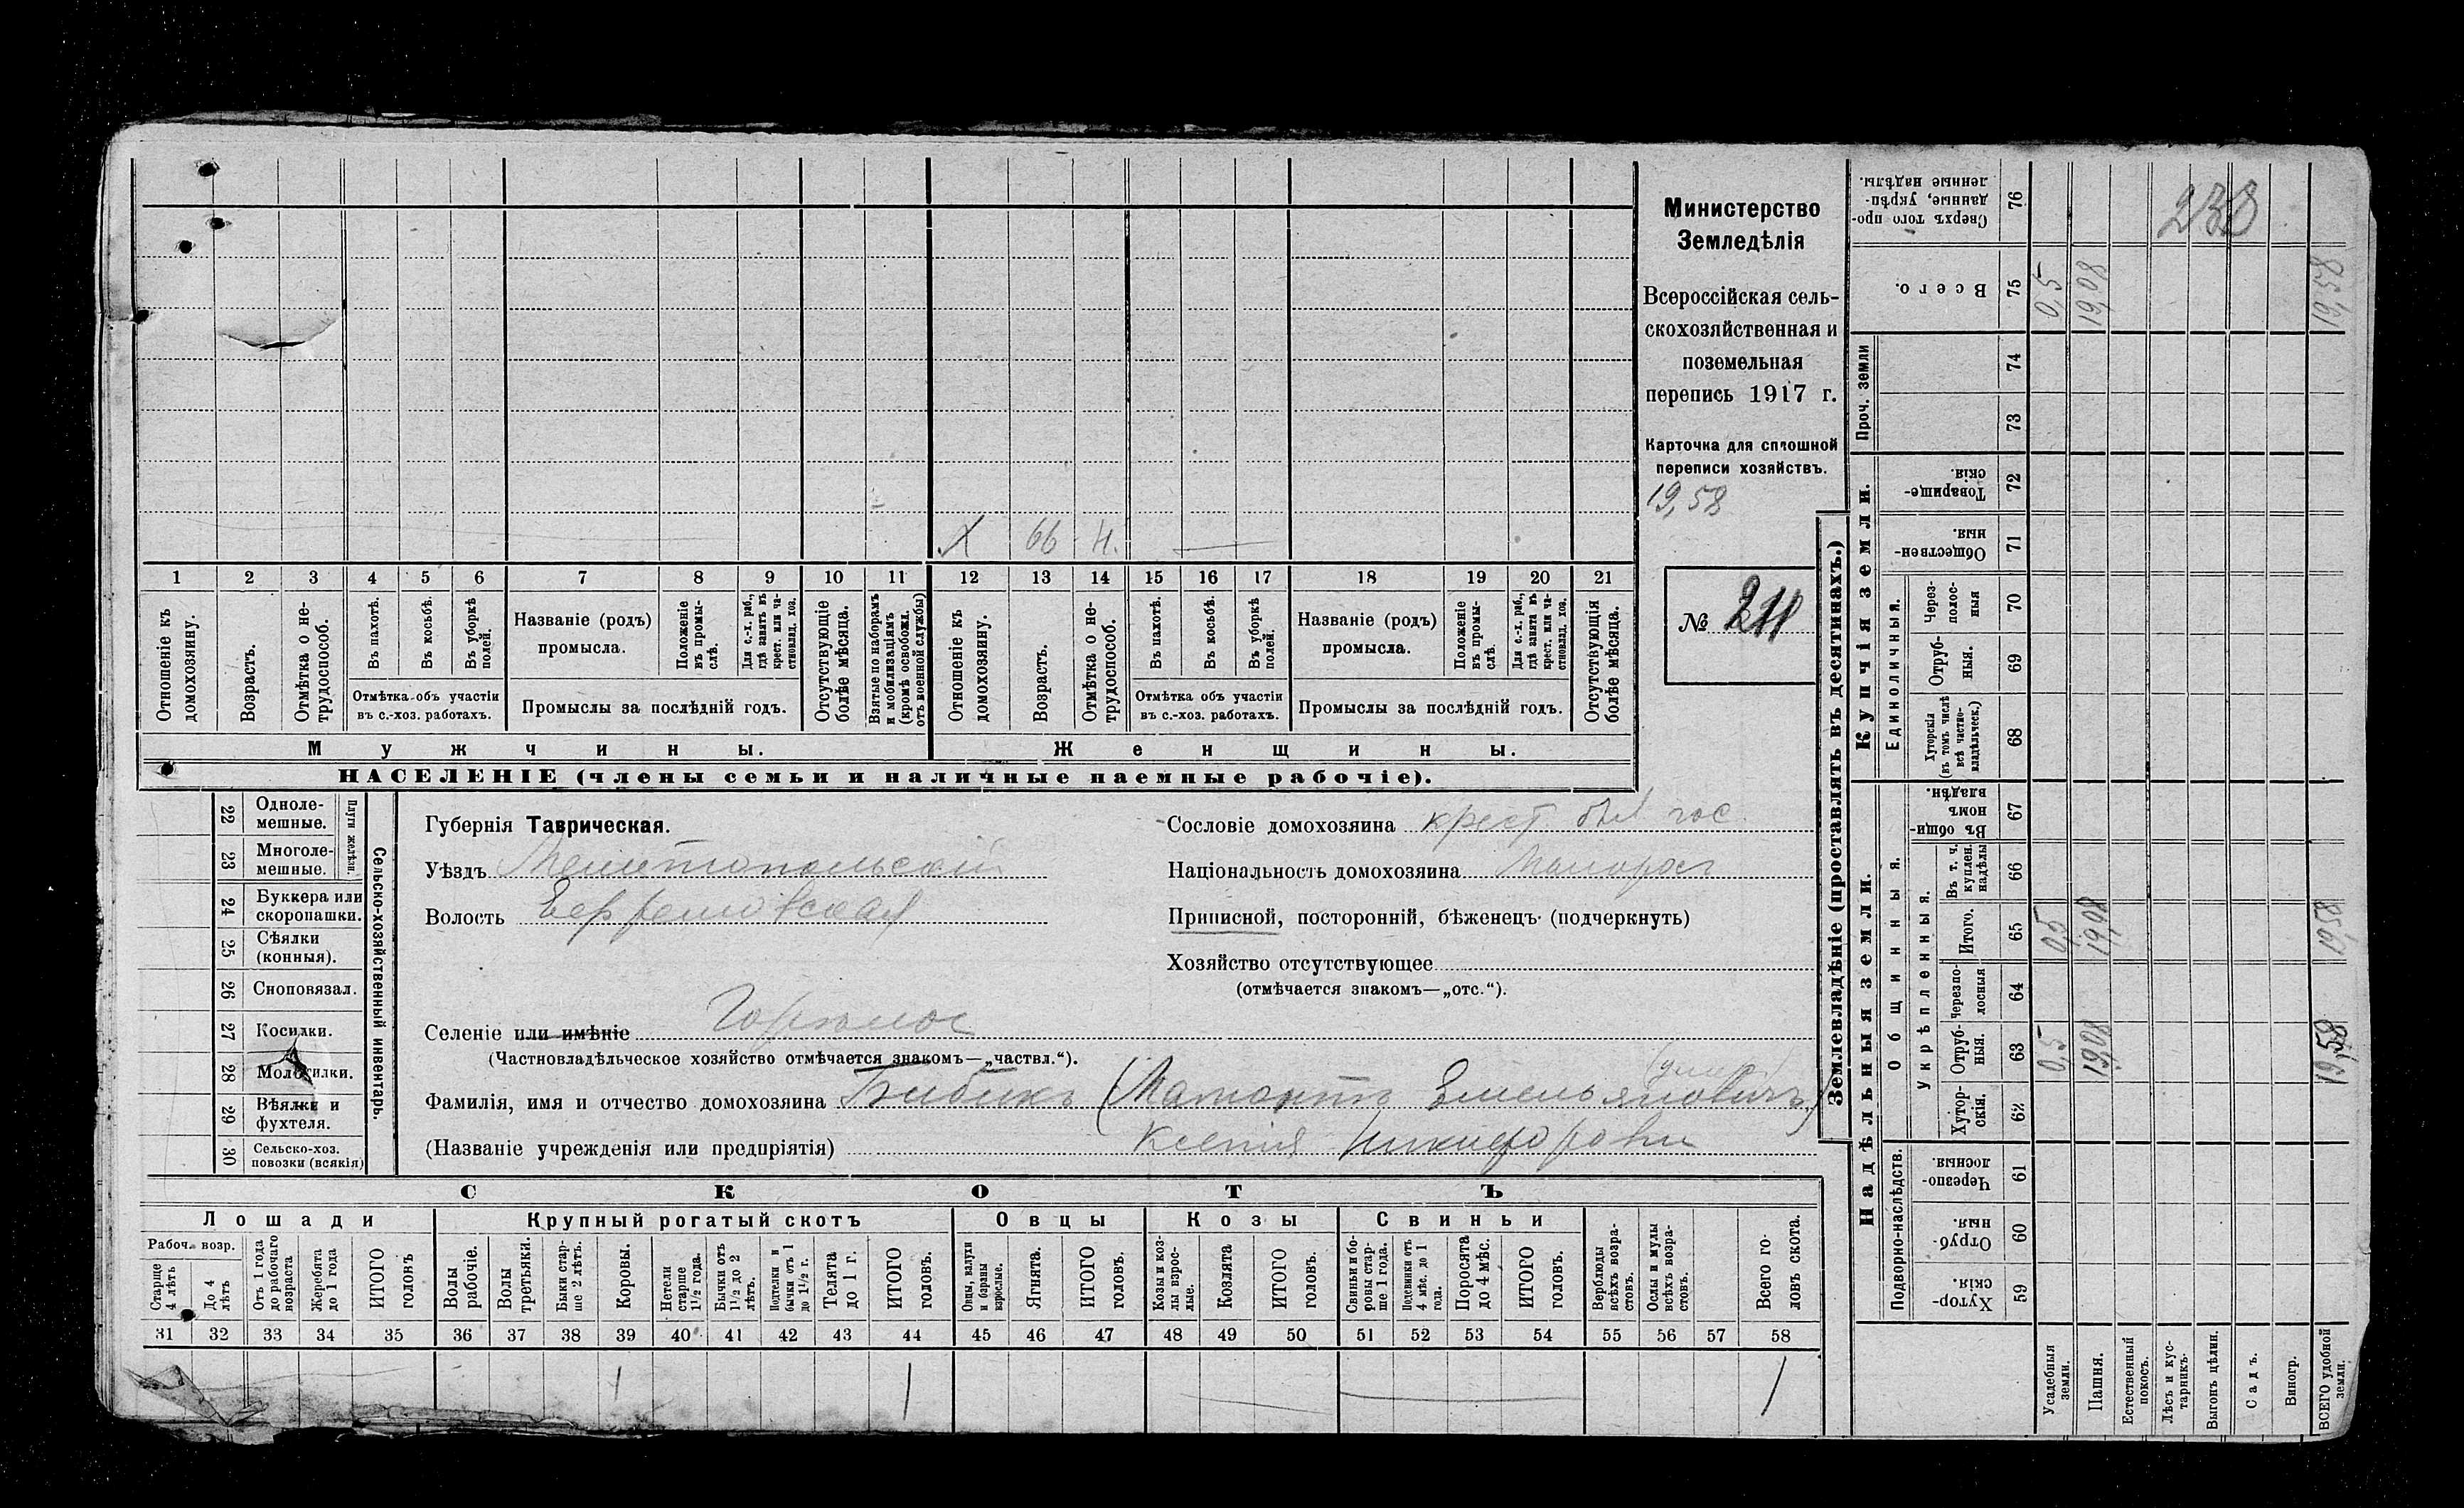 Министерство
Земледѣлія
Всероссійская сель-
скохозяйственная и
поземельная
перепись 1917 г.
Карточка для сплошной
переписи хозяйствъ.
19,58
№ 211
238
X 66 Н.
1 2 3 4 5 6 7 8 9 10 11 12 13 14 15 16 17 18 19 20 21
Отношеніе къ домохозяину.
Возрастъ.
Отмѣтка о не-трудоспособ.
Въ пахотѣ.
Въ косьбѣ.
Въ уборкѣ полей.
Отмѣтка объ участіи
въ с.-хоз. работахъ.
Названіе (родъ)
промысла.
Положеніе въ промы-слѣ.
Для с.-х. раб., гдѣ занятъ въ крест. или ча-стновлад. хоз.
Промыслы за послѣдній годъ.
Отсутствующіе болѣе мѣсяца.
Взятые по наборамъ и мобилизаціямъ (кромѣ освобожд. отъ военной службы)
Отношеніе къ домохозяину.
Возрастъ.
Отмѣтка о не-трудоспособ.
Въ пахотѣ.
Въ косьбѣ.
Въ уборкѣ полей.
Отмѣтка объ участіи
въ с.-хоз. работахъ.
Названіе (родъ)
промысла.
Положеніе въ промы-слѣ.
Для с.-х. раб., гдѣ занята въ крест. или ча-стновлад. хоз.
Промыслы за послѣдній годъ.
Отсутствующія болѣе мѣсяца.
Мужчины. Женщины.
НАСЕЛЕНІЕ (члены семьи и наличные наемные рабочіе).
22 Одноле-мешные.
23 Многоле-мешные.
Плуги желѣзн.
24 Буккера или скоропашки.
25 Сѣялки (конныя).
26 Сноповязал.
27 Косилки.
28 Молотилки.
29 Вѣялки и фухтеля.
30 Сельско-хоз. повозки (всякія)
Сельско-хозяйственный инвентарь.
Губернія Таврическая.
Уѣздъ Мелитопольскій
Волость Ефремовская
Селеніе или имѣніе
(Частновладѣльческое хозяйство отмѣчается знакомъ—„частвл.“).
Фамилія, имя и отчество домохозяина Бибикъ (Мамонтъ Емельяновичъ)
(Названіе учрежденія или предпріятія) Ксенія Никифоровн
Сословіе домохозяина крест. был гос.
Національность домохозяина Малорос
Приписной, посторонній, бѣженецъ (подчеркнуть)
Хозяйство отсутствующее
(отмѣчается знакомъ—„отс.“).
СКОТЪ
Лошади Крупный рогатый скотъ Овцы Козы Свиньи
Рабоч. возр.
Старше 4 лѣтъ
До 4 лѣтъ
Отъ 1 года до рабочаго возраста
Жеребята до 1 года
ИТОГО головъ
Волы рабочіе.
Волы третьяки.
Быки стар-ше 2 лѣтъ.
Коровы.
Нетели старше 1 1/2 года.
Бычки отъ 1 1/2 до 2 лѣтъ.
Подтелки и бычки отъ 1 до 1 1/2 г.
Телята до 1 г.
ИТОГО головъ.
Овцы, валухи и бараны взрослые.
Ягнята.
ИТОГО головъ.
Козы и коз-лы взрос-лые.
Козлята
ИТОГО головъ.
Свиньи и бо-ровы стар-ше 1 года.
Подсвинки отъ 4 мѣс. до 1 года.
Поросята до 4 мѣс.
ИТОГО головъ.
Верблюды всѣхъ возра-стовъ.
Ослы и мулы всѣхъ возра-стовъ.
Всего го-ловъ скота.
31 32 33 34 35 36 37 38 39 40 41 42 43 44 45 46 47 48 49 50 51 52 53 54 55 56 57 58
1 1 1
Землевладѣніе (проставлять въ десятинахъ.)
Надѣльныя земли. Купчія земли. Проч. земли
Подворно-наслѣдств.
Общинныя.
Укрѣпленныя.
Единоличныя.
Хутор-скія. 59
Отруб-ныя. 60
Черезпо-лосныя. 61
Хутор-скія. 62
Отруб-ныя. 63 0,5 19,08 19,58
черезпо-лосныя 64
Итого. 65 0,5 19,08 19,58
Въ т. ч. куплен. надѣлы 66
Въ общи-номъ владѣн. 67
Хуторскія (въ томъ числѣ всѣ частно-владѣльческ.) 68
Отруб-ныя. 69
Через-полос-ныя 70
Обществен-ныя 71
Товарище-скія. 72
73
74
Всего. 75 0,5 19,08 19,58
Сверхъ того про-данные, укрѣп-ленные надѣлы. 76
Усадебныя земли.
Пашня.
Естественный покосъ.
Лѣсъ и кус-тарникъ.
Выгонъ цѣлин.
Садъ.
Виногр.
ВСЕГО удобной земли.